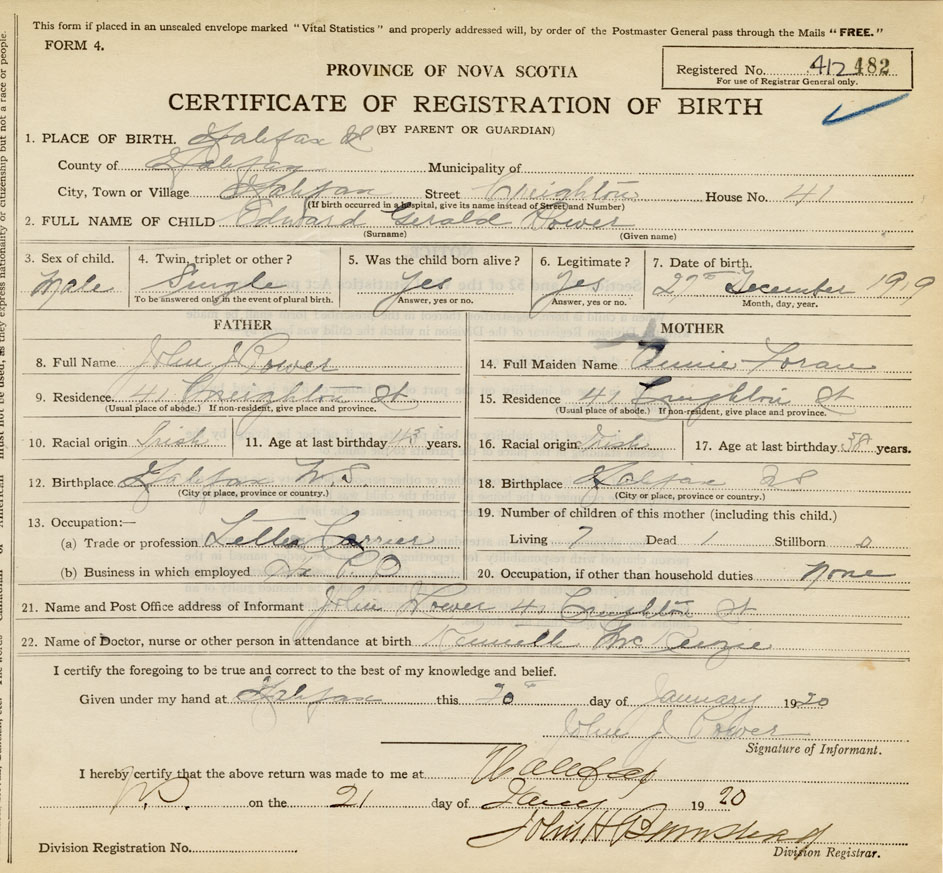 This form if placed in an unsealed envelope marked "Vital Statistics" and properly addressed will, by order of the Postmaster General pass through the Mails "FREE."
FORM 4.
PROVINCE OF NOVA SCOTIA
Registered No. 412 482
For use of Registrar General only.
CERTIFICATE OF REGISTRATION OF BIRTH
(BY PARENT OR GUARDIAN)
1. PLACE OF BIRTH. Halifax
County of Halifax Municipality of
City, Town or Village Halifax Street Creighton House No. 41
(If birth occurred in a hospital, give its name instead of Street and Number)
2. FULL NAME OF CHILD Edward Gerald Power
(Surname) (Given name)
3. Sex of child. 4. Twin, triplet or other? 5. Was the child born alive? 6. Legitimate? 7. Date of birth.
Male Single Yes Yes 27th December 1919
To be answered only in the event of plural birth. Answer, yes or no. Answer, yes or no. Month, day, year.
FATHER MOTHER
8. Full Name John J Power 14. Full Maiden Name Annie Foran
9. Residence. 41 Creighton St 15. Residence 41 Creighton St
(Usual place of abode.) If non-resident, give place and province. (Usual place of abode.) If non-resident, give place and province.
10. Racial origin Irish 11. Age at last birthday 43 years. 16. Racial origin Irish 17. Age at last birthday 38 years.
12. Birthplace Halifax N.S 18. Birthplace Halifax NS
(City or place, province or country.) (City or place, province or country.)
13. Occupation:— 19. Number of children of this mother (including this child.)
(a) Trade or profession Letter Carrier Living 7 Dead 1 Stillborn 0
(b) Business in which employed 20. Occupation, if other than household duties none
21. Name and Post Office address of Informant John Power 41 Creighton St
22. Name of Doctor, nurse or other person in attendance at birth Kenneth McKenzie
I certify the foregoing to be true and correct to the best of my knowledge and belief.
Given under my hand at Halifax this 20th day of January 1920
John J Power
Signature of Informant.
I hereby certify that the above return was made to me at Halifax
N.S. on the 21 day of Jany 1920
John H Barnstead
Division Registration No. Division Registrar.